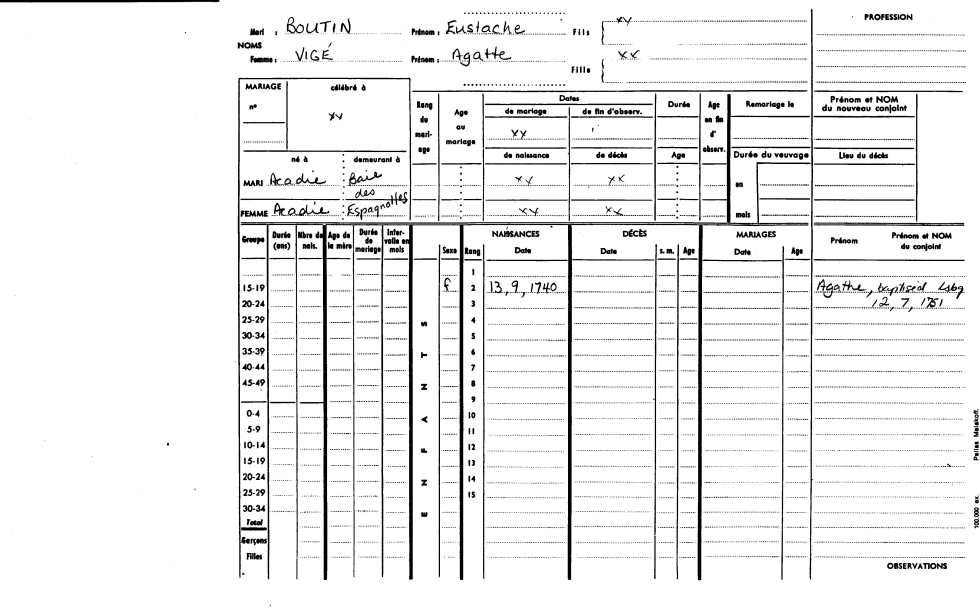 Mari : BOUTIN Prénom : Eustache Fils { xy
NOMS
Femme : VIGÉ Prénom : Agatte Fille { xx
PROFESSION
MARIAGE célébré à
n° xy
Rang du mari-age
Age au mariage
Dates
de mariage de fin d'observ.
xx
de naissance de décès
Durée
Age
Age en fin d' observ.
Remariage le
Durée du veuvage
en
mois
Prénom et NOM du nouveau conjoint
Lieu du décès
né à demeurant à
MARI Acadie Baie des xy xx
FEMME Acadie Espagnolles xy xx
Groupe Durée (ans) Nbre de nais. Age de la mère Durée de mariage Inter-valle en mois Sexe Rang NAISSANCES Date DÉCÈS Date s. m. Age MARIAGES Date Age Prénom Prénom et NOM du conjoint
ENFANTS
1
15-19 f 2 13, 9, 1740 Agathe, baptiséd Lsbg
20-24 3 12, 7, 1751
25-29 4
30-34 5
35-39 6
40-44 7
45-49 8
9
0-4 10
5-9 11
10-14 12
15-19 13
20-24 14
25-29 15
30-34
Total
Garçons
Filles
OBSERVATIONS
100.000 ex. Pallas Malakoff.